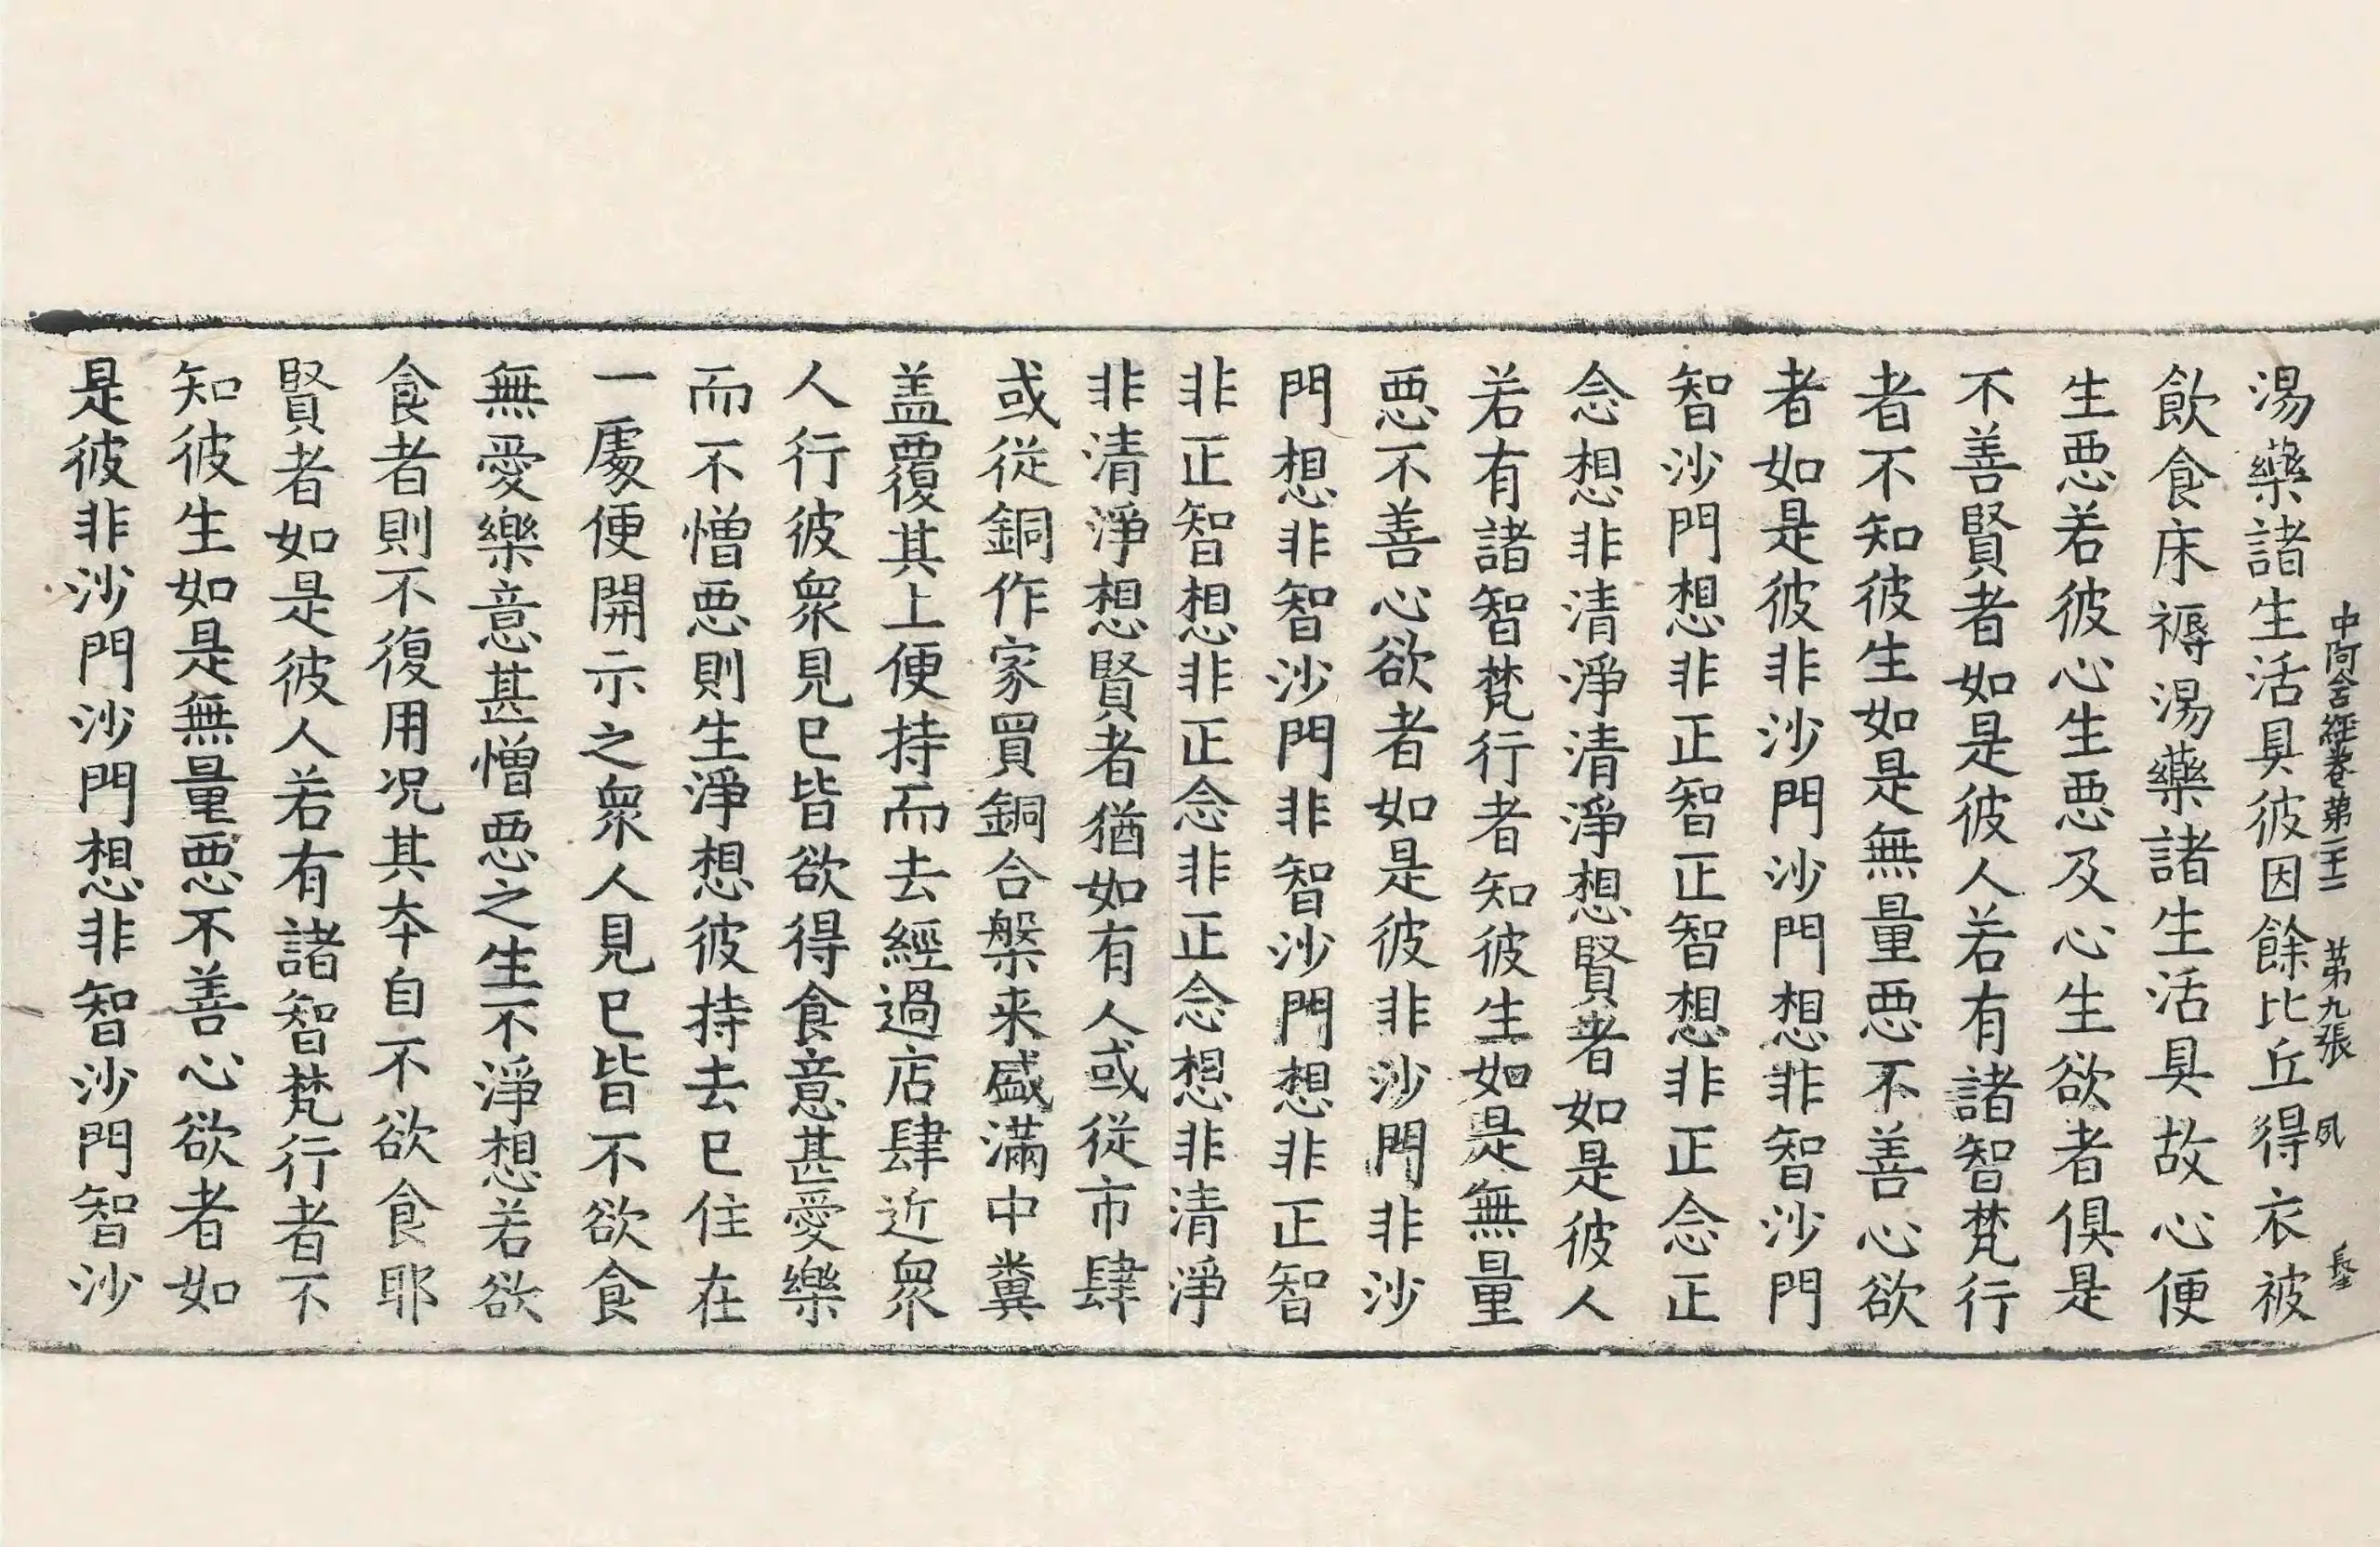 中阿含經卷第二十二 第九張 夙
湯藥諸生活具彼因餘比丘得衣被
飲食床褥湯藥諸生活具故心便
生惡若彼心生惡及心生欲者俱是
不善賢者如是彼人若有諸智梵行
者不知彼生如是無量惡不善心欲
者如是彼非沙門沙門想非智沙門
智沙門想非正智正智想非正念正
念想非清淨清淨想賢者如是彼人
若有諸智梵行者知彼生如是無量
惡不善心欲者如是彼非沙門非沙
門想非智沙門非智沙門想非正智
非正智想非正念非正念想非清淨
非清淨想賢者猶如有人或從市肆
或從銅作家買銅合槃来盛滿中糞
盖覆其上便持而去經過店肆近衆
人行彼衆見已皆欲得食意甚愛樂
而不憎惡則生淨想彼持去已住在
一處便開示之衆人見已皆不欲食
無愛樂意甚憎惡之生不淨想若欲
食者則不復用况其本自不欲食耶
賢者如是彼人若有諸智梵行者不
知彼生如是無量惡不善心欲者如
是彼非沙門沙門想非智沙門智沙